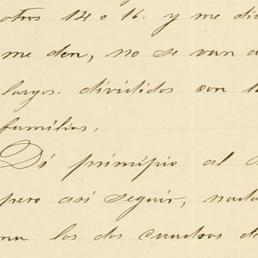 otros 14 o 16. y me di
me den, no se van a
largos. divididos con
familias.
Dí principio al
pero así seguir, nada
na los dos cuadros de